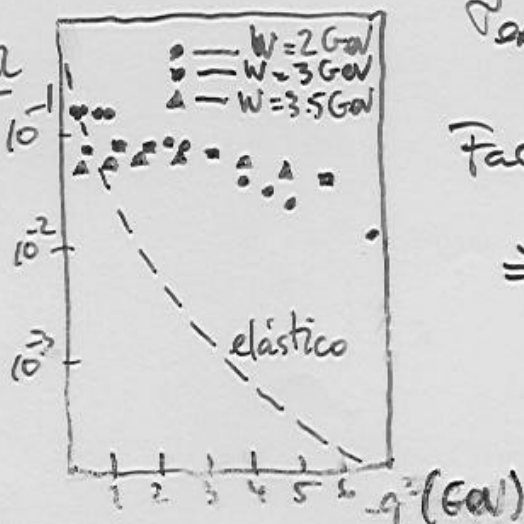 W = 2 GeV
W = 3 GeV
W = 3.5 GeV
10⁻¹
10⁻²
10⁻³
elástico
1 2 3 4 5 6
-q² (GeV)
⇒